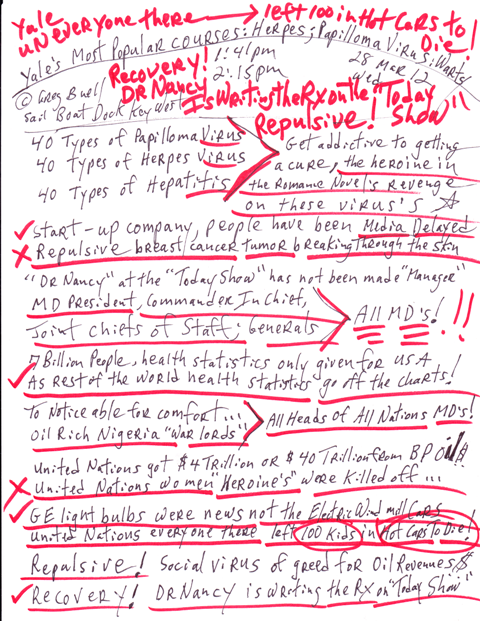 Yale
UN everyone there → left 100 in Hot Cars to Die!
Yale's Most Popular Courses: Herpes; Papilloma Virus: Warts
Recovery! 1:41pm
Dr Nancy 2:15pm
28 Mar 12
Wed
© Greg Buell
Sail Boat Dock Key West
Is Writing the Rx on the "Today Show"
Repulsive!
40 Types of Papilloma Virus
40 Types of Herpes Virus
40 Types of Hepatitis
Get addictive to getting
a cure, the heroine in
the Romance Novel's revenge
on these virus's
Start-up company, people have been Media Delayed
Repulsive breast cancer tumor breaking through the skin
"Dr Nancy" at the "Today Show" has not been made "Manager"
MD President, Commander In Chief,
Joint Chiefs of Staff; Generals
All MD's! !!
7 Billion People, health statistics only given for USA
As rest of the world health statistics go off the charts!
To Notice able for comfort...
Oil Rich Nigeria "War lords"
All Heads of All Nations MD's!
United Nations got $4 Trillion or $40 Trillion from BP Oil $
United Nations women "Heroine's" were killed off...
GE light bulbs were news not the Electric Windmill Cars
United Nations everyone there left 100 Kids in Hot Cars To Die!
Repulsive! Social virus of greed for Oil Revenues $
Recovery! Dr Nancy is writing the Rx on "Today Show"